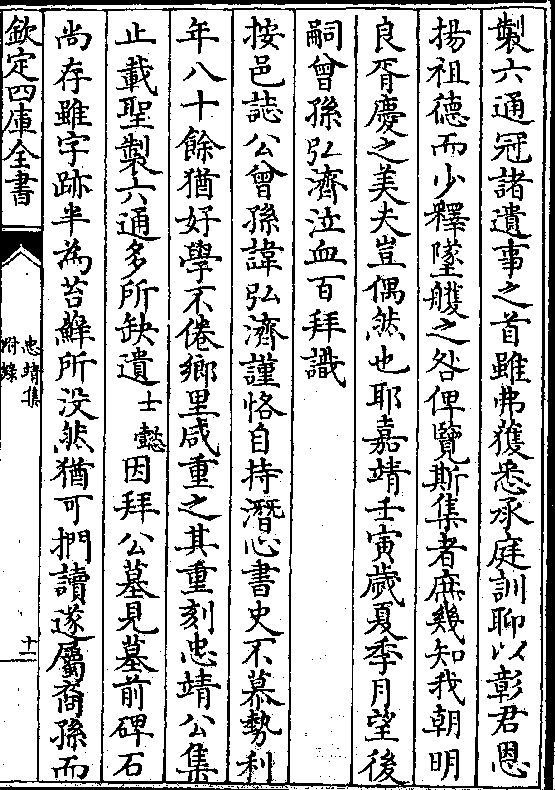 製六通冠諸遺事之首雖弗獲悉承庭訓聊以彰君恩
揚祖德而少釋墜䕶之咎俾覽斯集者庶幾知我朝明
良胥慶之美夫豈偶然也耶嘉靖壬寅歲夏季月望後
嗣曾孫弘濟泣血百拜識
按邑誌公曾孫諱弘濟謹恪自持潛心書史不慕勢利
年八十餘猶好學不倦鄉里咸重之其重刻忠靖公集
止載聖製六通多所缺遺士懿因拜公墓見墓前碑石
尚存雖字跡半為苔蘚所沒然猶可捫讀遂屬裔孫而
欽定四庫全書
忠靖集
附錄
十一